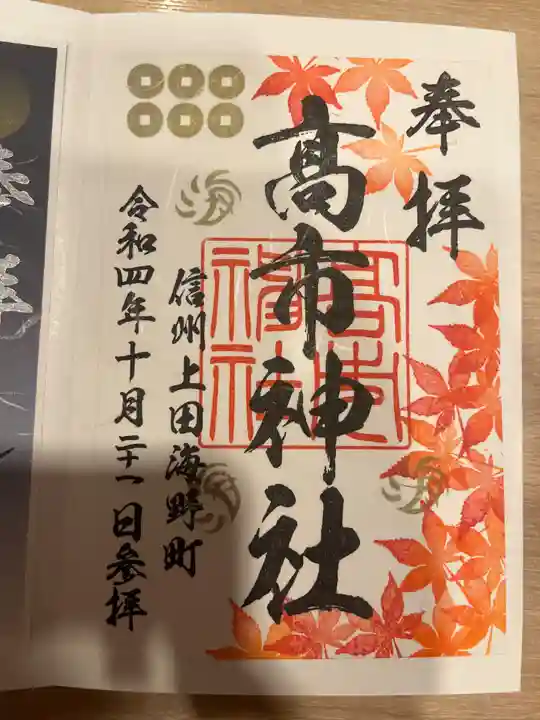 奉拝
髙市神社
信州上田海野町
令和四年十月二十一日参拝
海